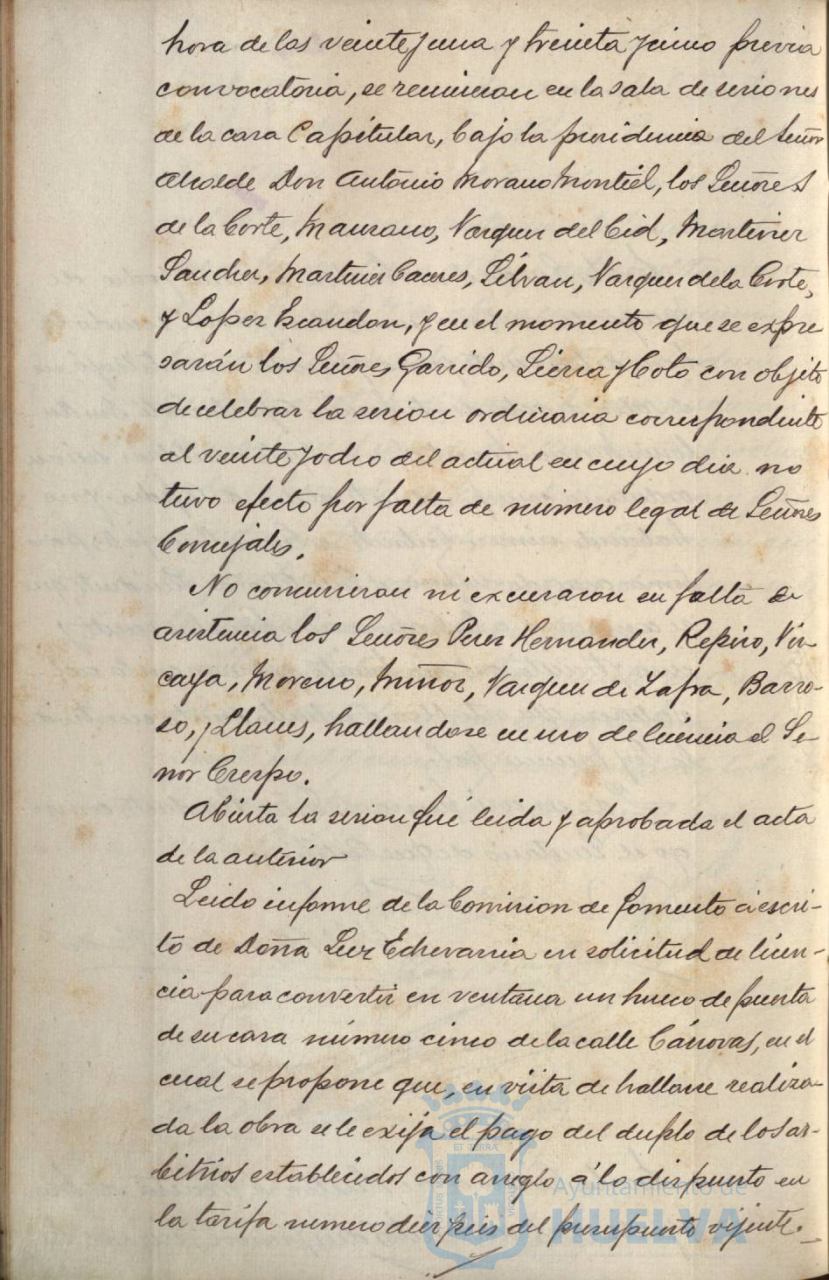 hora de las veinte y una y treinta y cinco previa
convocatoria, se reunieron en la sala de sesiones
de la casa Capitular, bajo la presidencia del Señor
Alcalde Don Antonio Morano Montiel, los Señores
de la Corte, Manzano, Vazquez del Cid, Martinez
Sanchez, Martinez Caceres, Silvan, Vazquez de la Corte,
y Lopez Escandon, y en el momento que se expre
sarán los Señores Garrido, Sierra y Coto con objeto
de celebrar la sesion ordinaria correspondiente
al veinte y ocho del actual en cuyo dia no
tuvo efecto por falta de número legal de Señores
Concejales.
No concurrieron ni excusaron su falta de
asistencia los Señores Perez Hernandez, Repiso, Viz
caya, Moreno, Muñoz, Vazquez de Zafra, Barro-
so, y Llanes, hallandose en uso de licencia el Se-
ñor Crespo.
Abierta la sesion fué leida y aprobada el acta
de la anterior
Leido informe de la Comision de fomento á escri-
to de Doña Luz Echevarria en solicitud de licen-
cia para convertir en ventana un hueco de puerta
de su casa número cinco de la calle Cánovas, en el
cual se propone que, en vista de hallarse realiza-
da la obra se le exija el pago del duplo de los ar-
bitrios establecidos con arreglo á lo dispuesto en
la tarifa numero diez y seis del presupuesto vijente.
Ayuntamiento de
HUELVA